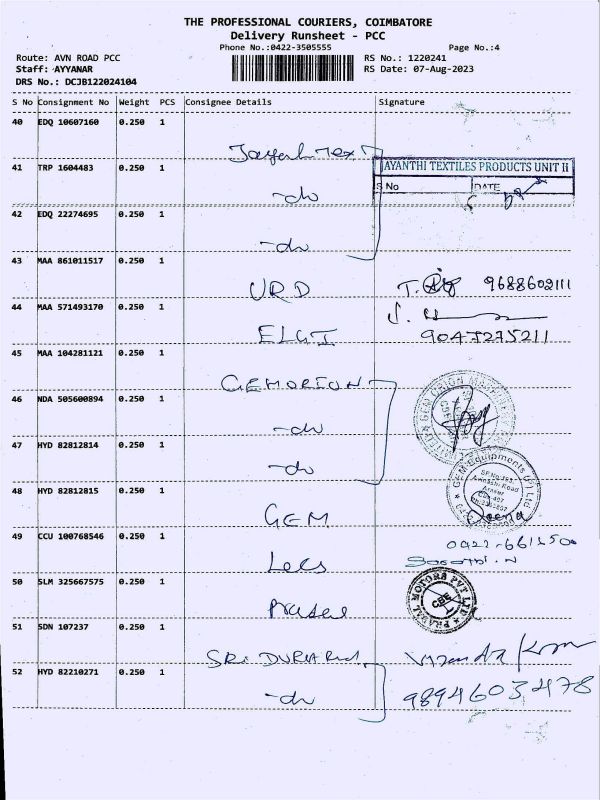 THE PROFESSIONAL COURIERS, COIMBATORE
Delivery Runsheet - PCC
Phone No.:0422-3505555 Page No.:4
Route: AVN ROAD PCC RS No.: 1220241
Staff: AYYANAR RS Date: 07-Aug-2023
DRS No.: DCJB122024104
S No Consignment No Weight PCS Consignee Details Signature
40 EDQ 10607160 0.250 1
Tex
41 TRP 1604483 0.250 1
AYANTHI TEXTILES PRODUCTS UNIT II
S No DATE
-do
42 EDQ 22274695 0.250 1
-do
43 MAA 861011517 0.250 1
URD T. 9688602111
44 MAA 571493170 0.250 1
ELGI 9047275211
45 MAA 104281121 0.250 1
GEMORION
46 NDA 505600894 0.250 1
-do
47 HYD 82812814 0.250 1
-do
GEM Equipments (P) Ltd
48 HYD 82812815 0.250 1
GEM
49 CCU 100768546 0.250 1
50 SLM 325667575 0.250 1
MOTORS PVT LTD
CBE
51 SDN 107237 0.250 1
SRi DURGA
52 HYD 82210271 0.250 1
-do 9894603478